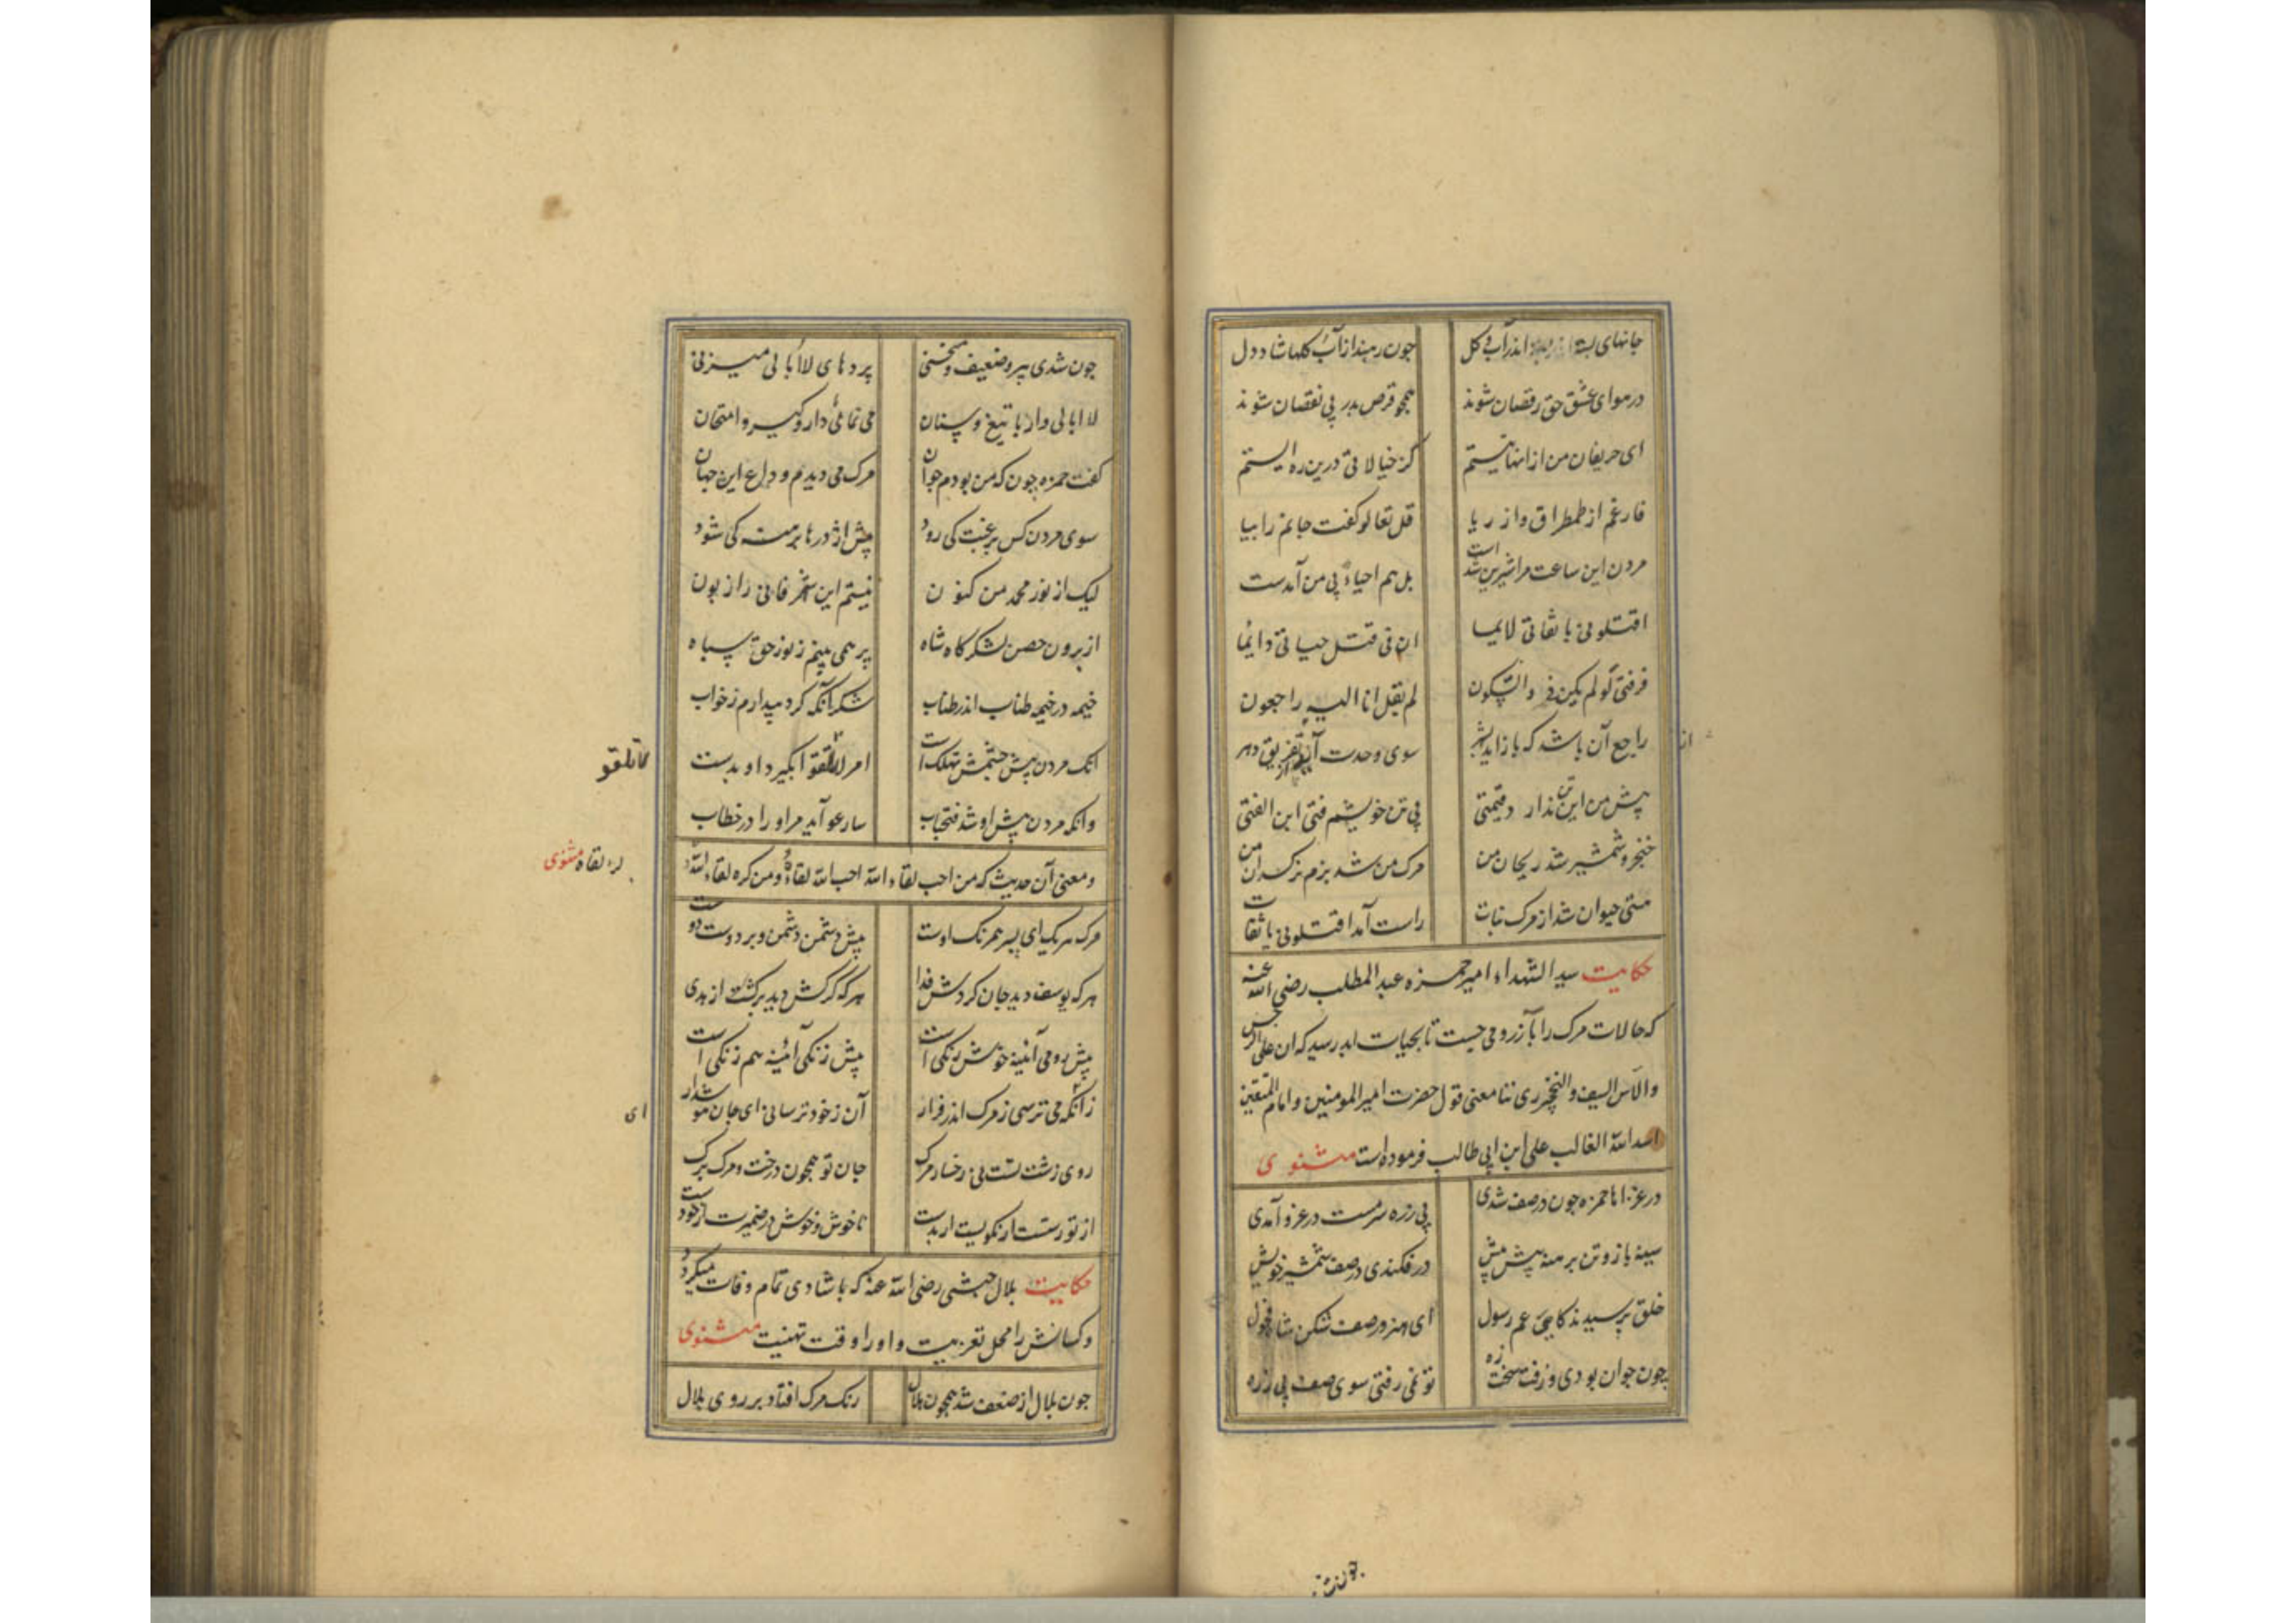 جانهای بسته اندر آب و کل چون رهند از آب کلها شاد دل
در هوای عشق حق رقصان شوند همچو قرص بدر بی نقصان شوند
ای حریفان من از انها نیستم کز خیالاتی درین ره ایستم
فارغم از طمطراق و از ریا قل تعالو گفت جانم را بیا
مردن این ساعت مرا شیرین شدست بل هم احیاء پی من آمدست
اقتلونی یا ثقاتی لایما ان فی قتلی حیاتی دایما
فرقتی لو لم یکن فی ذا السکون لم یقل انا الیه راجعون
راجع آن باشد که باز اید بشهر سوی وحدت آید از تفریق دهر
از
پیش من این تن ندارد قیمتی بی تن خویشم فتی ابن الفتی
خنجر و شمشیر شد ریحان من مرک من شد بزم نرکسدان من
منتی حیوان شد از مرک نبات راست آمد اقتلونی یا ثقات
حکایت سید الشهداء امیر حمزه عبد المطلب رضی الله عنه
که حالات مرک را بآرزو می جست تا بحیات ابد رسید که ان علی
والآس السیف والخنجر ریحاننا معنی قول حضرت امیر المومنین و امام المتقین
اسد الله الغالب علی ابن ابی طالب فرموده است مثنوی
در غزا اما حمزه چون در صف شدی بی زره سرمست در غزو آمدی
سینه باز و تن برهنه پیش پیش در فکندی در صف شمشیر خویش
خلق پرسیدند کای عم رسول ای هزبر صف شکن شاه فحول
چون جوان بودی و زفت و سخت زه تو نمی رفتی سوی صف بی زره
چون شدی پیر و ضعیف و منحنی پردهای لاابالی میزنی
لاابالی وار با تیغ و سنان می نمائی دار و کیر و امتحان
کفت حمزه چون که من بودم جوان مرک می دیدم وداع این جهان
سوی مردن کس برغبت کی رود پیش اژدرها برهنه کی شود
لیک از نور محمد من کنون نیستم این شهر فانی را زبون
از برون حصن لشکرکاه شاه پر همی بینم ز نور حق سپاه
خیمه در خیمه طناب اندر طناب شکر آنکه کرد بیدارم ز خواب
انک مردن پیش چشمش تهلکه است امر لاتلقوا بکیرد او بدست
لاتلقو
وانکه مردن پیش او شد فتح باب سارعو آمد مر او را در خطاب
و معنی آن حدیث که من احب لقاء الله احب الله لقاءه و من کره لقاء الله
لقاه مثنوی
مرک هر یک ای پسر همرنک اوست پیش دشمن دشمن و بر دوست دوست
هر که یوسف دید جان کردش فدا هر که کرکش دید برکشت از هدی
پیش رومی آئینه خوش رنکی است پیش زنکی آئینه هم زنکی است
زآنکه می ترسی ز مرک اندر فرار آن ز خود ترسانی ای جان هوشدار
ای
روی زشت تست نی رخسار مرک جان تو همچون درخت و مرک برک
از تو رستست ار نکویست ار بدست ناخوش و خوش در ضمیرت از خودست
حکایت بلال حبشی رضی الله عنه که باشادی تمام وفات میکرد
و کسانش را محل تعزیت و او را وقت تهنیت مثنوی
چون بلال از ضعف شد همچون هلال رنک مرک افتاد بر روی بلال